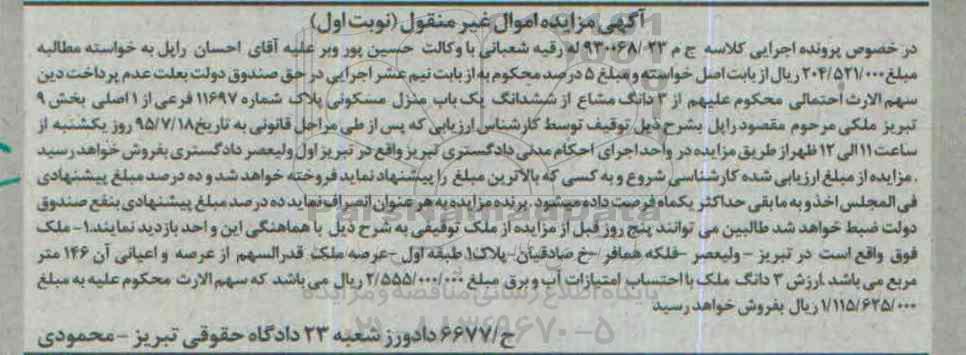 آگهی مزایده اموال غیر منقول (نوبت اول)
در خصوص پرونده اجرایی کلاسه ج م ۹۳۰۰۶۸/۲۳ له رقیه شعبانی با وکالت حسین پور ویر علیه آقای احسان رایل به خواسته مطالبه
مبلغ ۲۰۴/۵۲۱/۰۰۰ ریال از بابت اصل خواسته و مبلغ ۵ درصد محکوم به از بابت نیم عشر اجرایی در حق صندوق دولت بعلت عدم پرداخت دین
سهم الارث احتمالی محکوم علیهم از ۳ دانگ مشاع از ششدانگ یک باب منزل مسکونی پلاک شماره ۱۱۶۹۷ فرعی از ۱ اصلی بخش ۹
تبریز ملکی مرحوم مقصود رایل بشرح ذیل توقیف توسط کارشناس ارزیابی که پس از طی مراحل قانونی به تاریخ ۹۵/۷/۱۸ روز یکشنبه از
ساعت ۱۱ الی ۱۲ ظهر از طریق مزایده در واحد اجرای احکام مدنی دادگستری تبریز واقع در تبریز اول ولیعصر دادگستری بفروش خواهد رسید
. مزایده از مبلغ ارزیابی شده کارشناسی شروع و به کسی که بالاترین مبلغ را پیشنهاد نماید فروخته خواهد شد و ده درصد مبلغ پیشنهادی
فی المجلس اخذ و به مابقی حداکثر یکماه فرصت داده میشود. برنده مزایده به هر عنوان انصراف نماید ده درصد مبلغ پیشنهادی بنفع صندوق
دولت ضبط خواهد شد طالبین می توانند پنج روز قبل از مزایده از ملک توقیفی به شرح ذیل با هماهنگی این واحد بازدید نمایند.۱- ملک
فوق واقع است در تبریز - ولیعصر - فلکه همافر - خ صادقیان - پلاک ۱ طبقه اول - عرصه ملک قدرالسهم از عرصه و اعیانی آن ۱۴۶ متر
مربع می باشد .ارزش ۳ دانگ ملک با احتساب امتیازات آب و برق مبلغ ۲/۵۵۵/۰۰۰/۰۰۰ ریال می باشد که سهم الارث محکوم علیه به مبلغ
۱/۱۱۵/۶۲۵/۰۰۰ ریال بفروش خواهد رسید
ح/۶۶۷۷ دادورز شعبه ۲۳ دادگاه حقوقی تبریز - محمودی
ParsNamadData
پایگاه اطلاع رسانی مناقصه و مزایده
۰۲۱-۸۸۳۴۹۶۷۰-۵